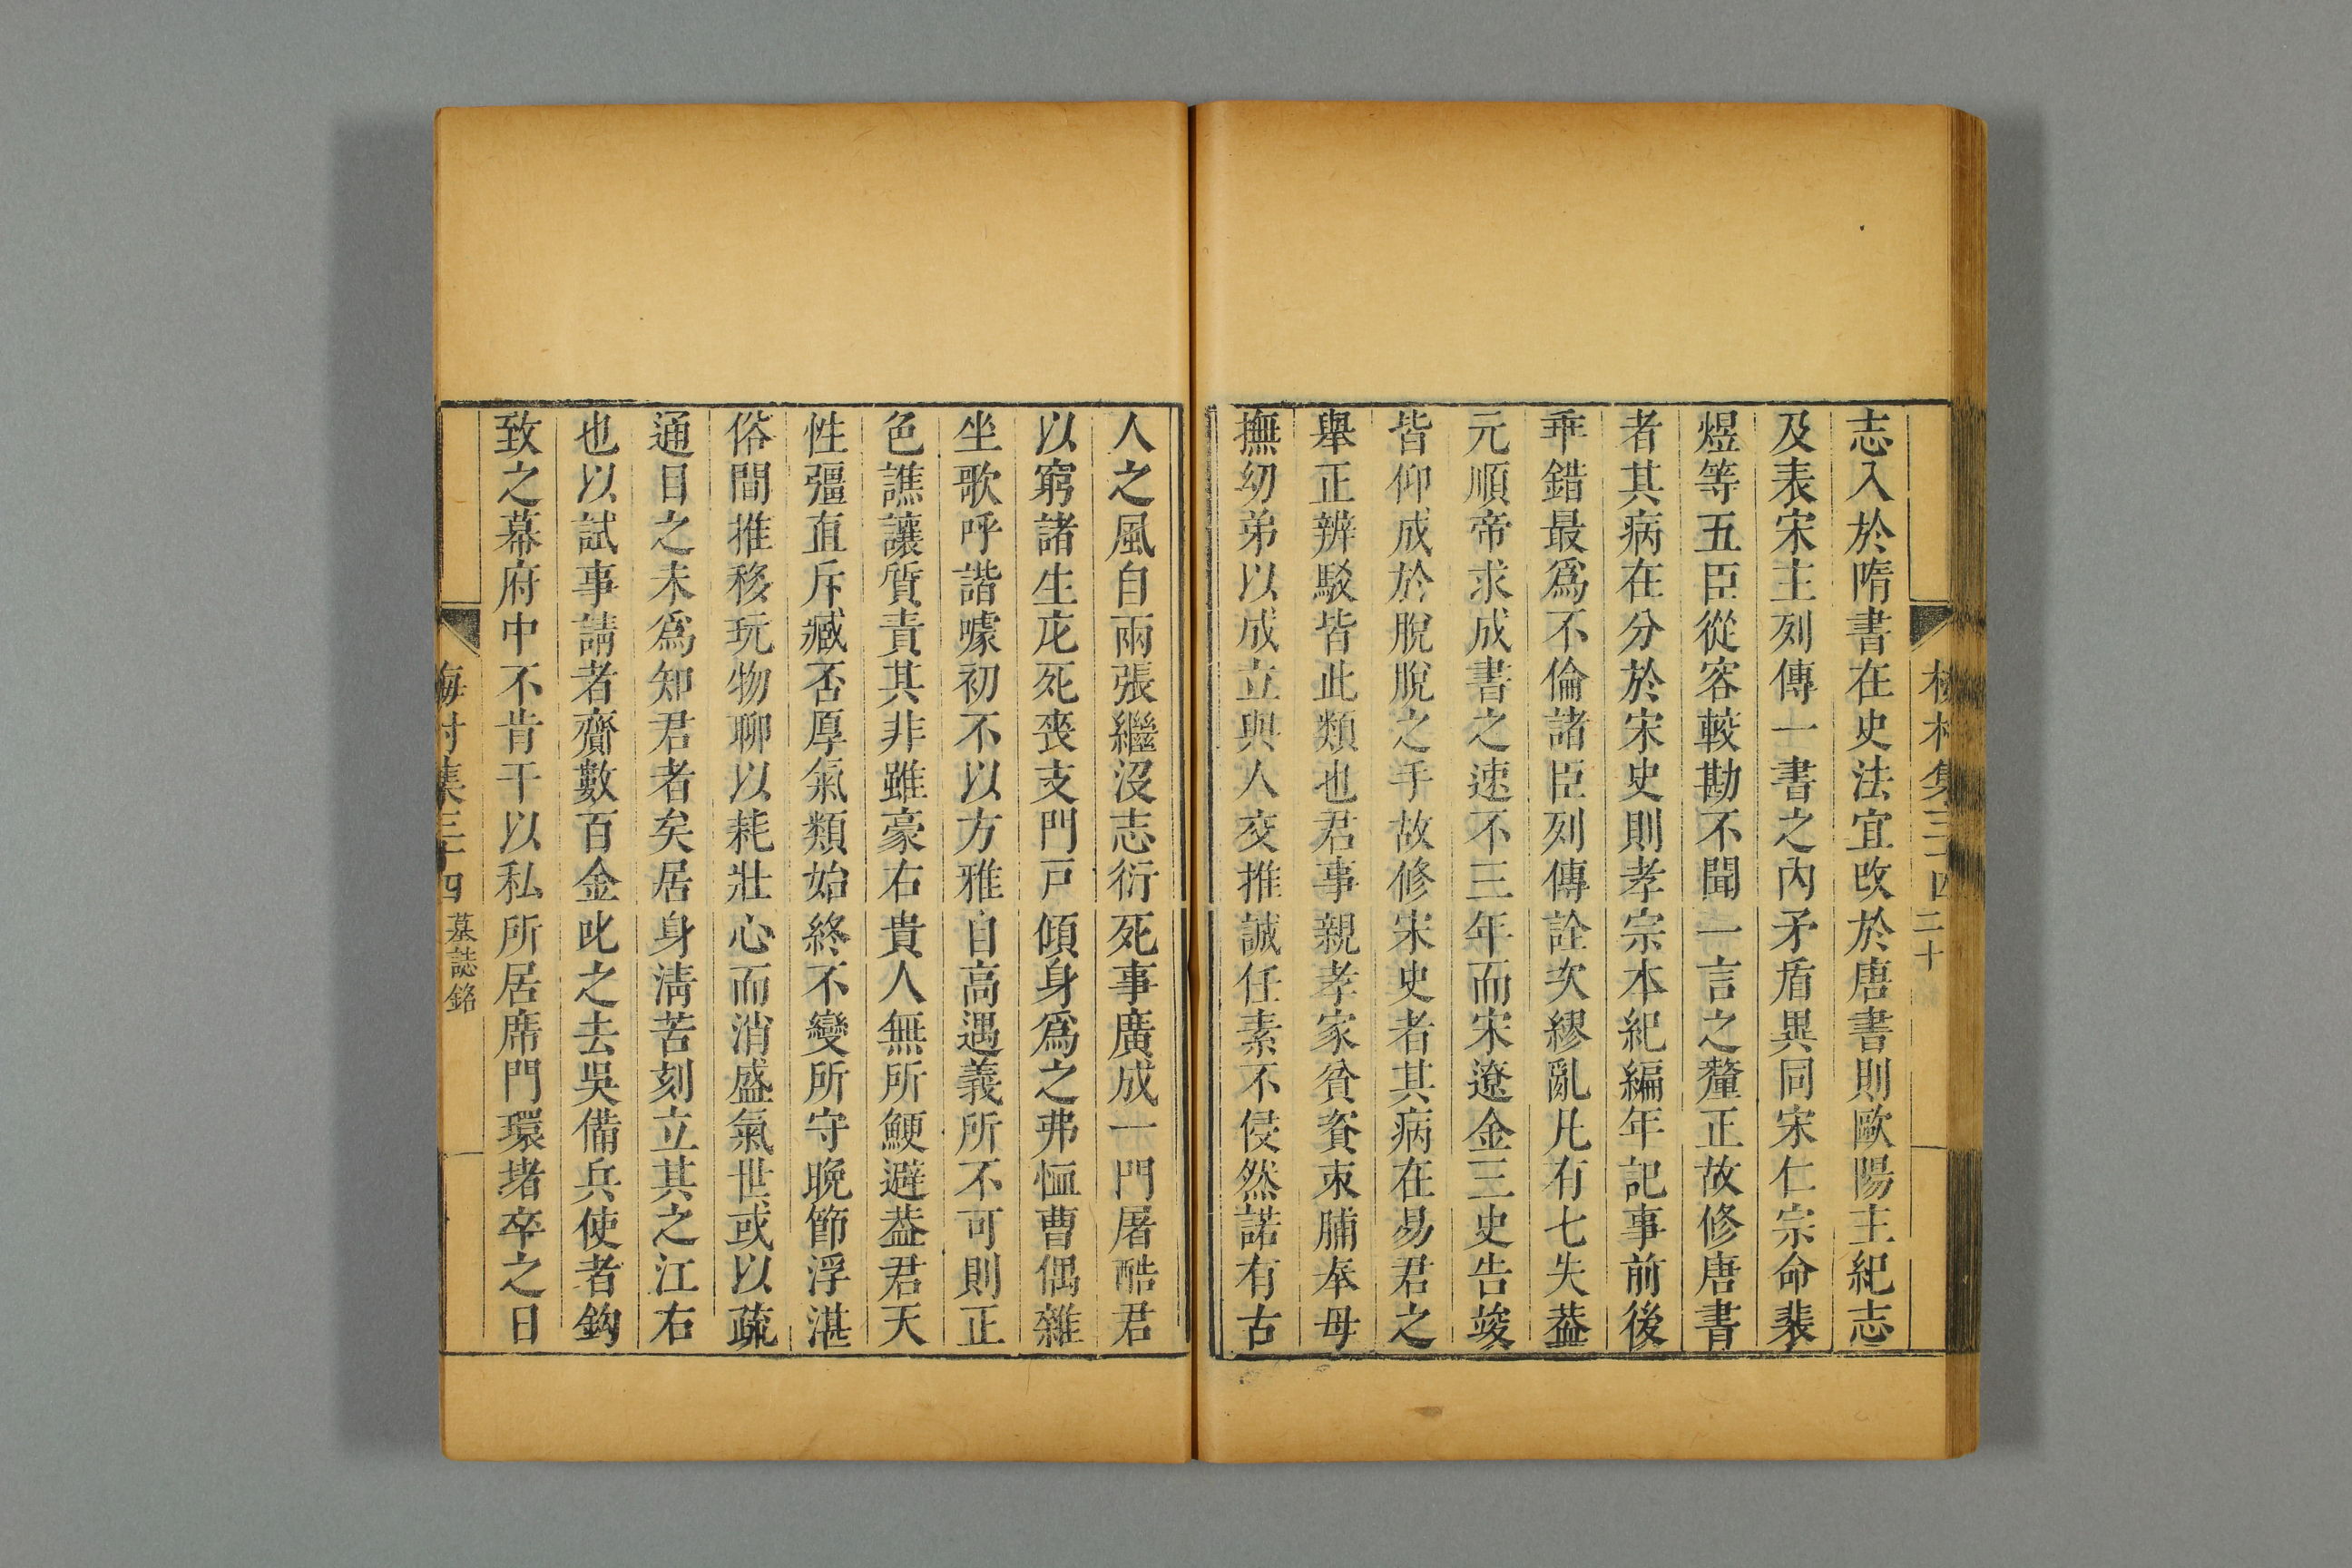 志入於隋書在史法宜改於唐書則歐陽主紀志
及表宋主列傳一書之內矛盾異同宋仁宗命裴
煜等五臣從容較勘不聞一言之釐正故修唐書
者其病在分於宋史則孝宗本紀編年記事前後
乖錯最爲不倫諸臣列傳詮次繆亂凡有七失葢
元順帝求成書之速不三年而宋遼金三史告竣
皆仰成於脫脫之手故修宋史者其病在易君之
舉正辨駁皆此類也君事親孝家貧資束脯奉母
撫幼弟以成立與人交推誠任素不侵然諾有古
人之風自兩張繼沒志衍死事廣成一門屠酷君
以窮諸生庀死喪支門戸傾身爲之弗恤曹偶雜
坐歌呼諧噱初不以方雅自高遇義所不可則正
色譙讓質責其非雖豪右貴人無所鯁避葢君天
性彊直斥臧否厚氣類始終不變所守晚節浮湛
俗間推移玩物聊以耗壯心而消盛氣世或以疏
通目之未爲知君者矣居身淸苦刻立其之江右
也以試事請者齎數百金叱之去吳備兵使者鈎
致之幕府中不肯干以私所居席門環堵卒之日
梅村集三十四 墓誌銘
二十